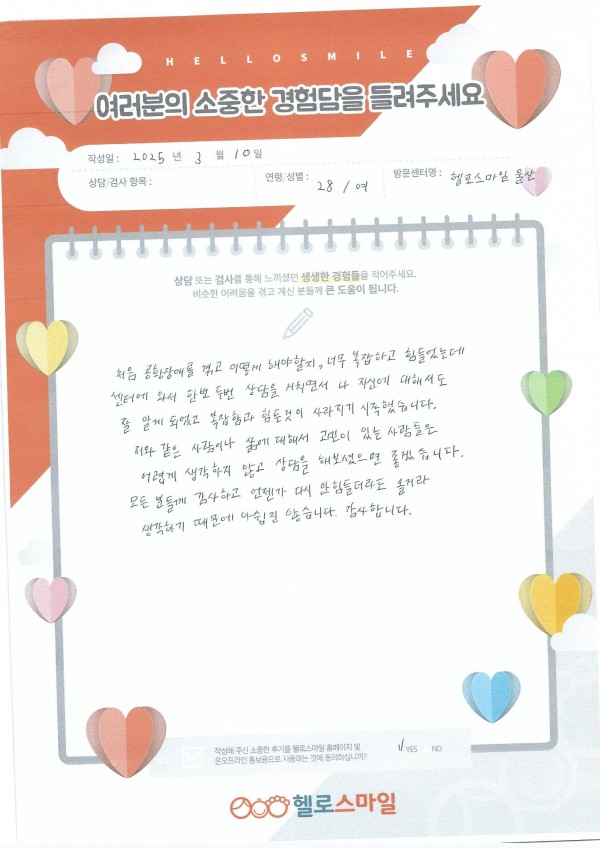 HELLOSMILE
여러분의 소중한 경험담을 들려주세요
작성일 : 2025 년 3 월 10 일
상담/검사 항목 :
연령/성별 : 28 / 여
방문센터명 : 헬로스마일 울산
상담 또는 검사를 통해 느끼셨던 생생한 경험들을 적어주세요.
비슷한 어려움을 겪고 계신 분들께 큰 도움이 됩니다.
처음 공황장애를 겪고 어떻게 해야할지, 너무 복잡하고 힘들었는데
센터에 와서 한번 두번 상담을 거치면서 나 자신에 대해서도
잘 알게 되었고 복잡함과 힘든것이 사라지기 시작했습니다.
저와 같은 사람이나 삶에 대해서 고민이 있는 사람들은
어렵게 생각하지 않고 상담을 해보셨으면 좋겠습니다.
모든 분들께 감사하고 언젠가 다시 안힘들더라도 올거라
생각하기 때문에 아쉽진 않습니다. 감사합니다.
작성해 주신 소중한 후기를 헬로스마일 홈페이지 및
온오프라인 홍보용으로 사용하는 것에 동의하십니까?
√ YES NO
헬로스마일